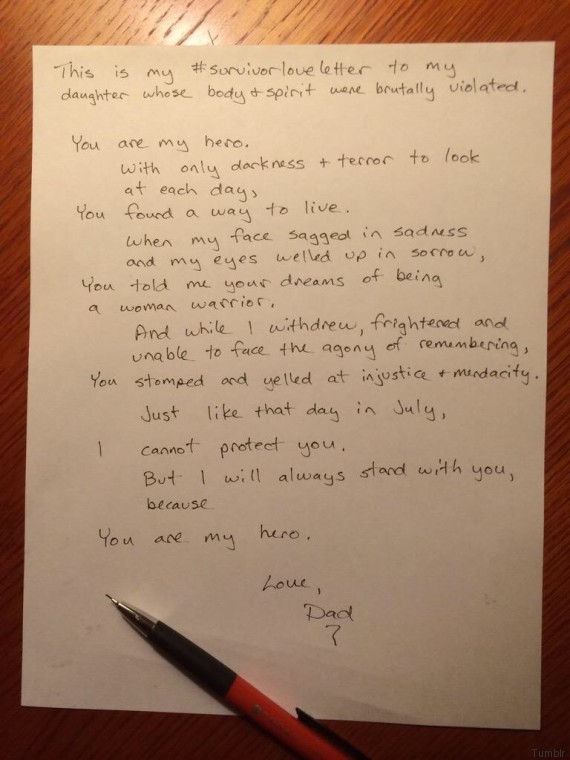 This is my #survivorloveletter to my
daughter whose body + spirit were brutally violated.
You are my hero.
With only darkness + terror to look
at each day,
You found a way to live.
When my face sagged in sadness
and my eyes welled up in sorrow,
You told me your dreams of being
a woman warrior.
And while I withdrew, frightened and
unable to face the agony of remembering,
You stomped and yelled at injustice + mendacity.
Just like that day in July,
I cannot protect you.
But I will always stand with you,
because
You are my hero.
Love,
Dad
Tumblr